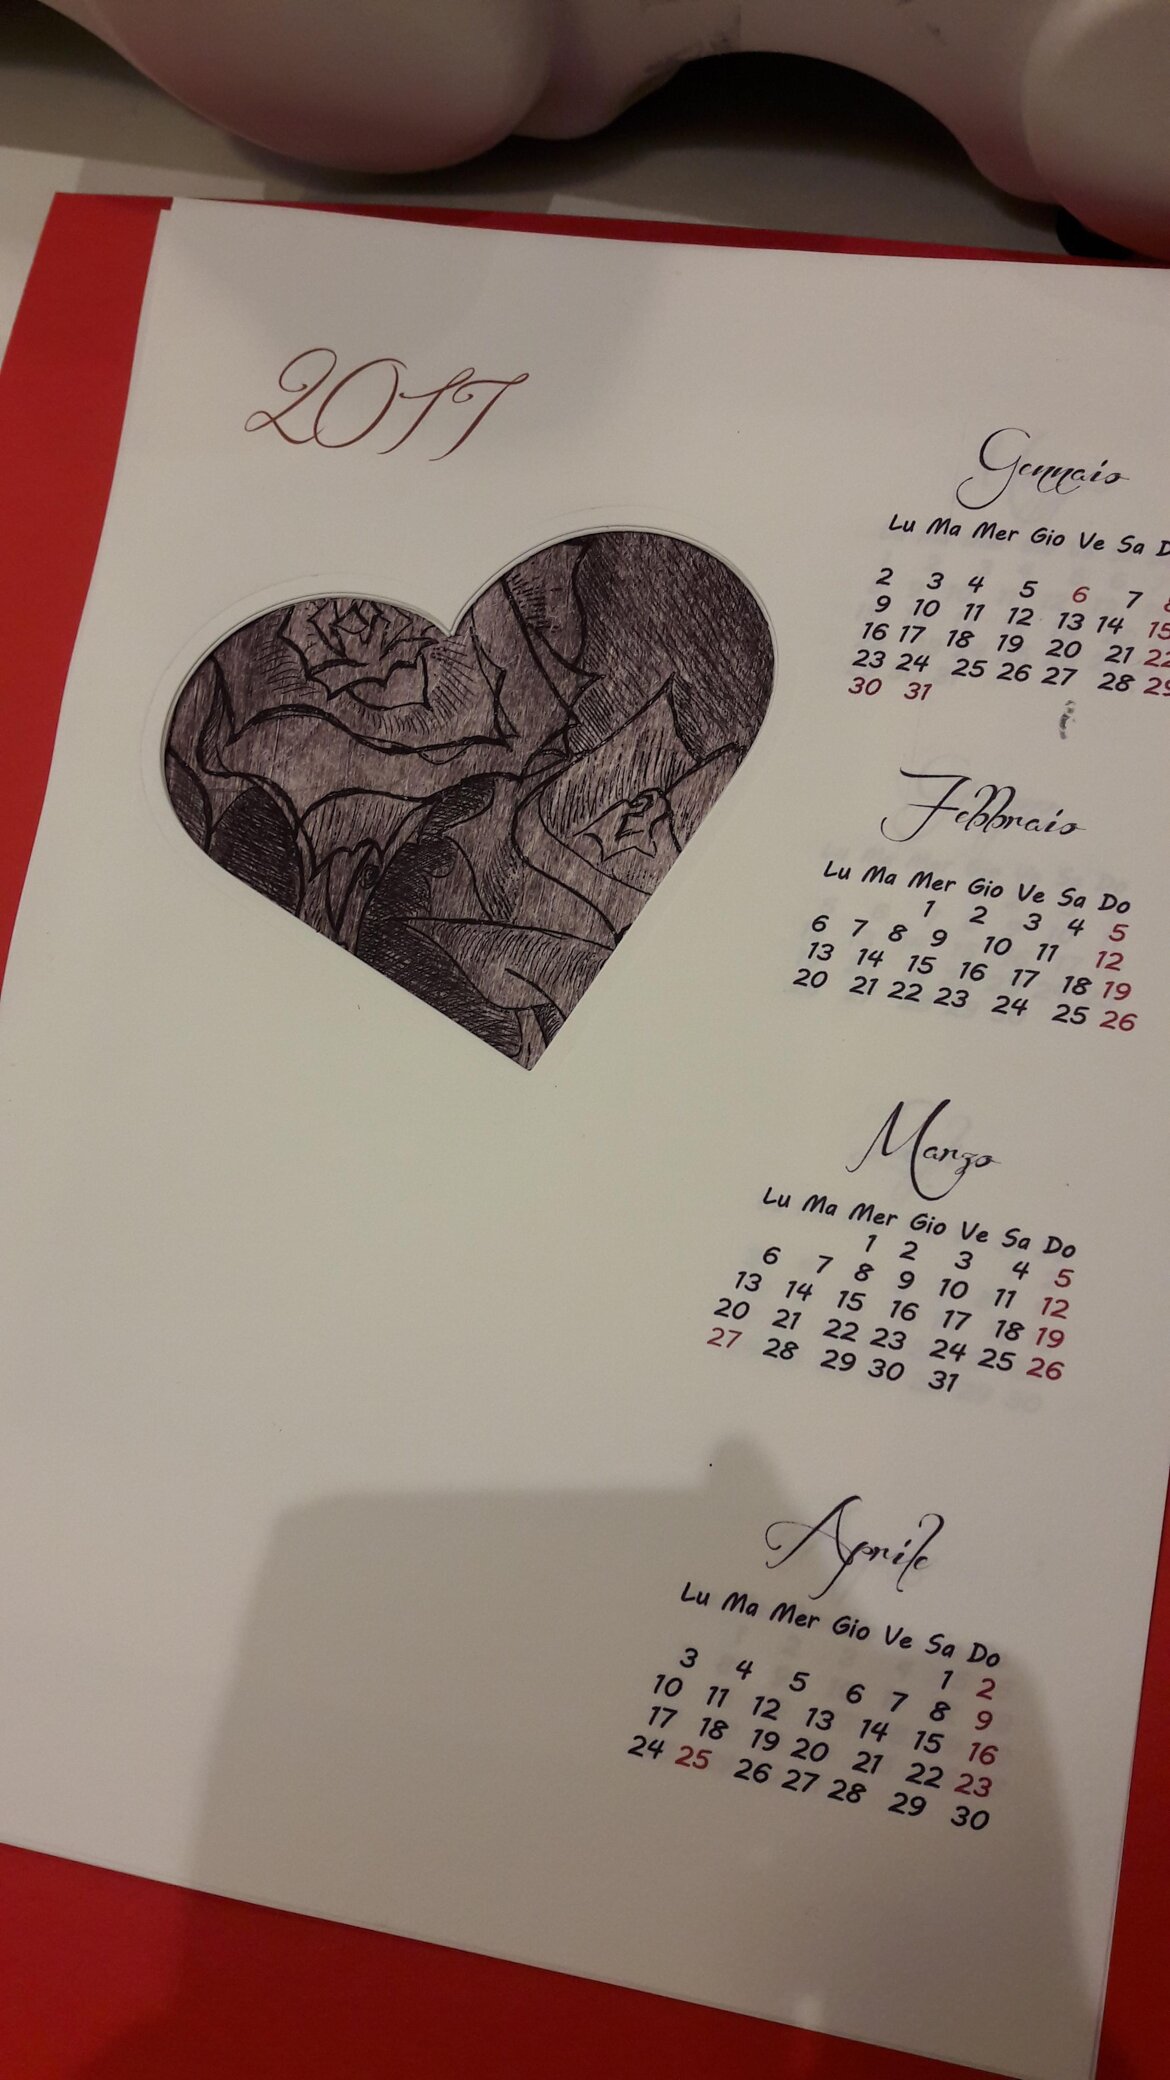 2017
Gennaio
Lu Ma Mer Gio Ve Sa D
2 3 4 5 6 7 8
9 10 11 12 13 14 15
16 17 18 19 20 21 22
23 24 25 26 27 28 29
30 31
Febbraio
Lu Ma Mer Gio Ve Sa Do
1 2 3 4 5
6 7 8 9 10 11 12
13 14 15 16 17 18 19
20 21 22 23 24 25 26
Marzo
Lu Ma Mer Gio Ve Sa Do
1 2 3 4 5
6 7 8 9 10 11 12
13 14 15 16 17 18 19
20 21 22 23 24 25 26
27 28 29 30 31
Aprile
Lu Ma Mer Gio Ve Sa Do
1 2
3 4 5 6 7 8 9
10 11 12 13 14 15 16
17 18 19 20 21 22 23
24 25 26 27 28 29 30